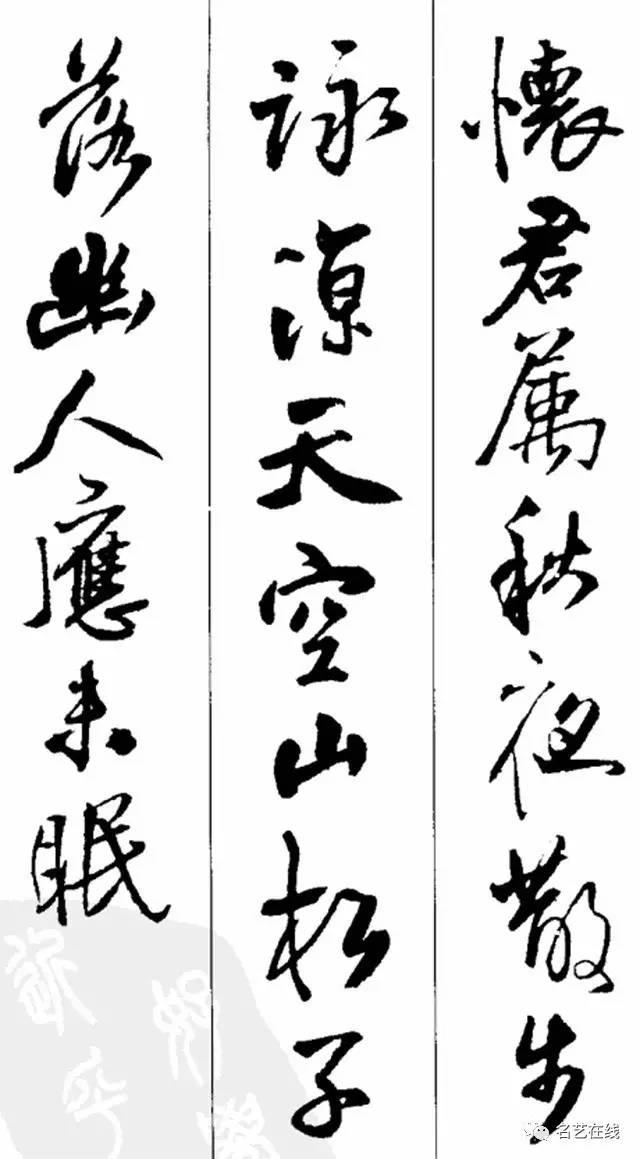 懷君屬秋夜散步
詠涼天空山松子
落幽人應未眠
名艺在线